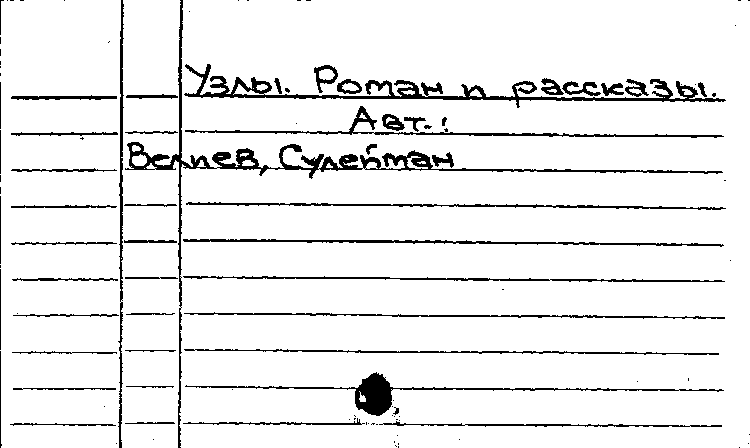 Узлы. Роман и рассказы.
Авт.:
Велиев, Сулейман